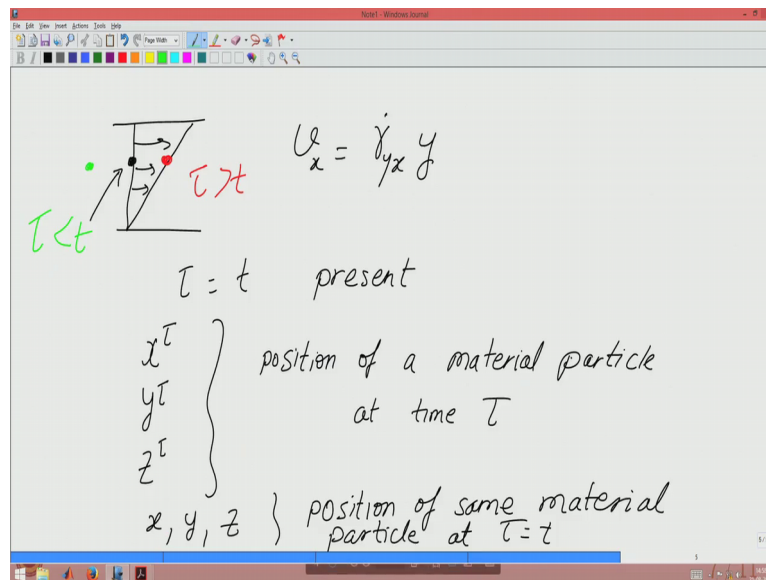 Note1 - Windows Journal
File Edit View Insert Actions Tools Help
Page Width
B I
v_x = γ̇_yx y
τ > t
τ < t
τ = t present
x^τ
y^τ
z^τ
position of a material particle
at time τ
x, y, z } position of same material
particle at τ = t